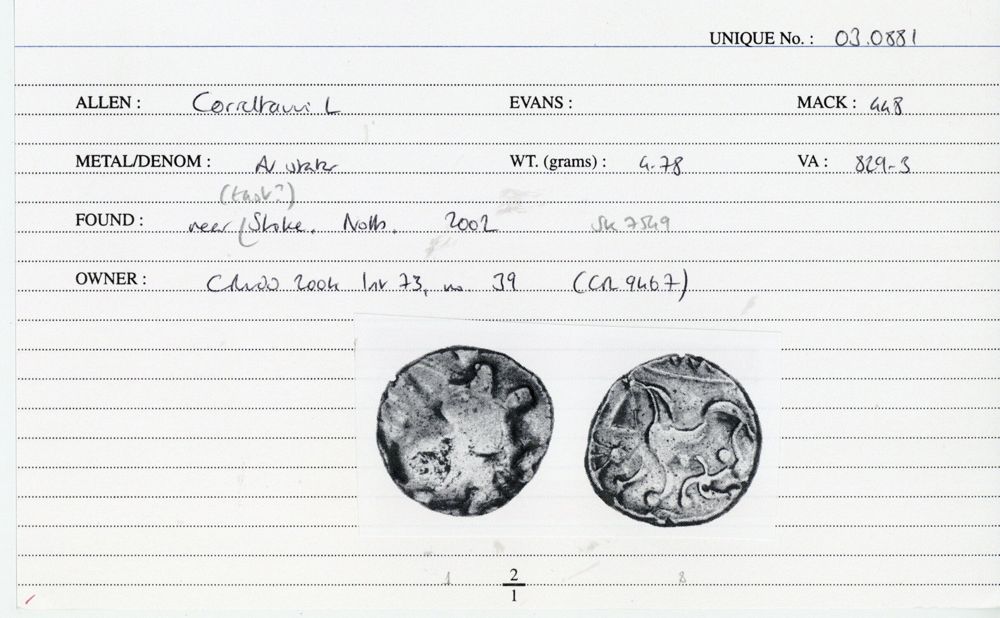 UNIQUE No. : 03.0881
ALLEN : Corieltauvi L EVANS : MACK : 448
METAL/DENOM : AV stater WT. (grams) : 4.78 VA : 829-3
(East?)
FOUND : near Stoke. Notts. 2002 SK 7549
OWNER : 2004 73, no. 39 (CR 9467)
1 2 8
1